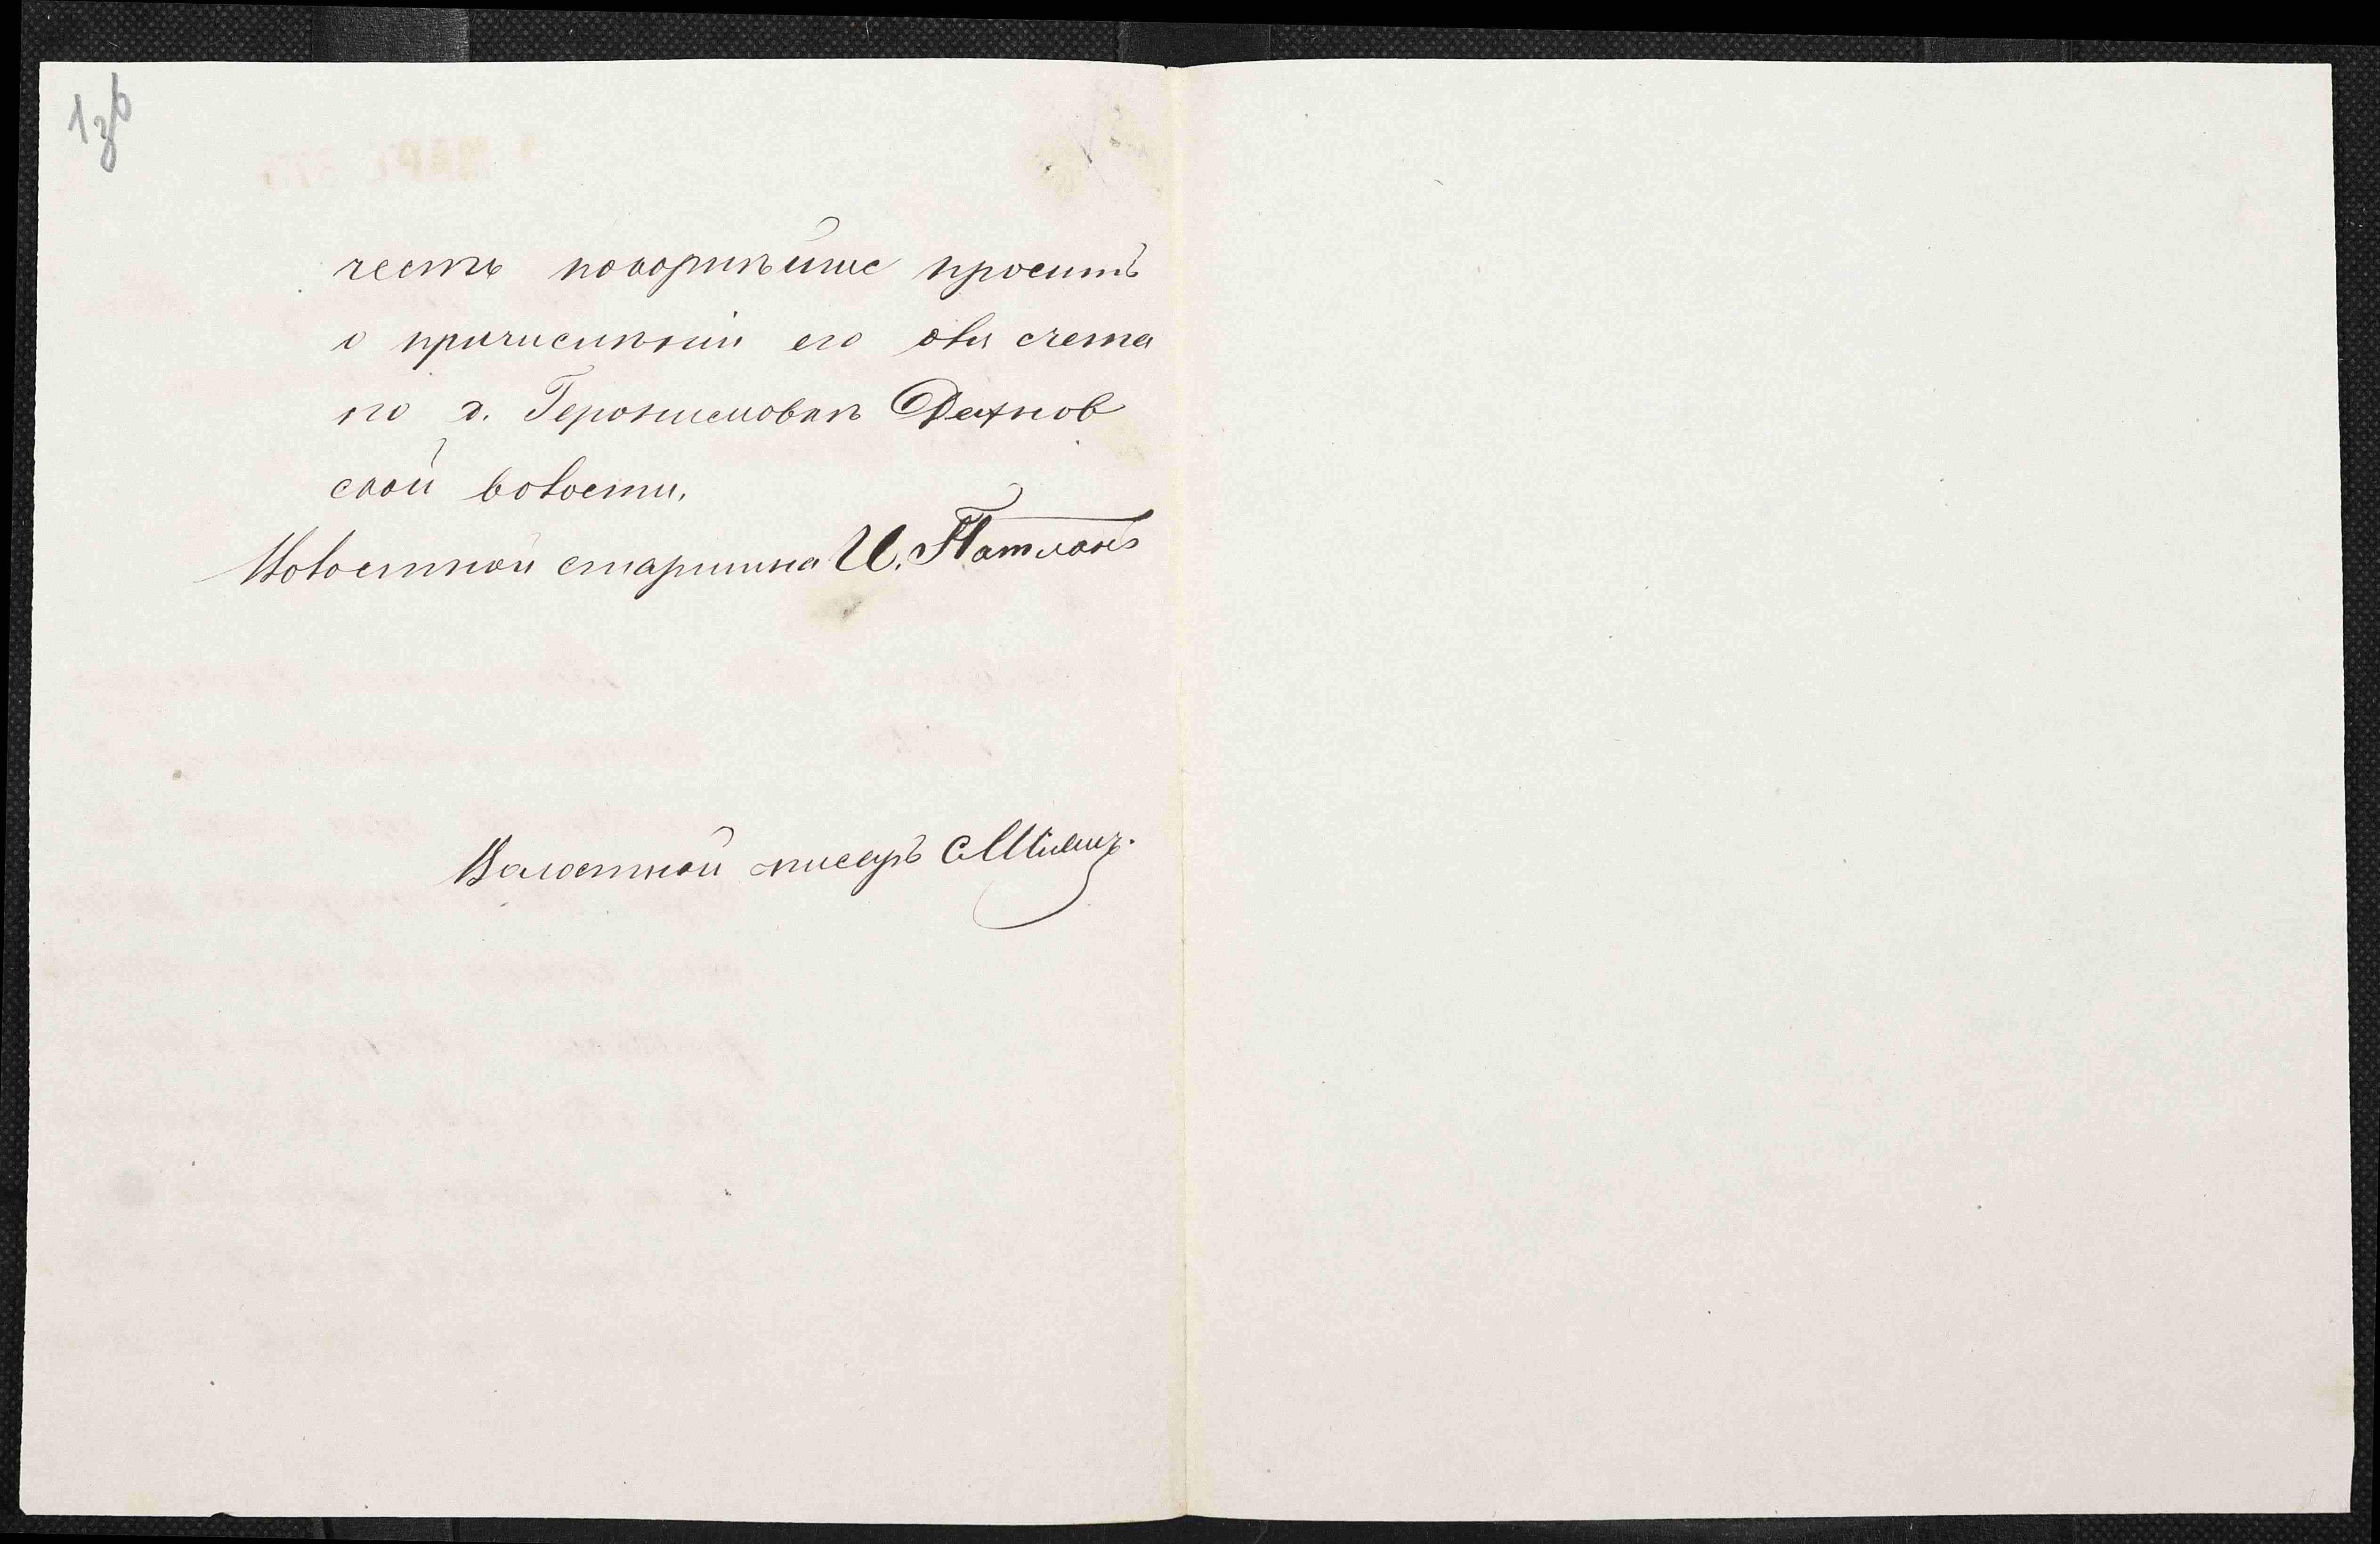 1 зв
честь покорнѣйше просить
о причисленіи его для счета
по д. Геронимовкѣ Дахнов
ской волости.
Волостной старшина И. Патланъ
Волостной писарь